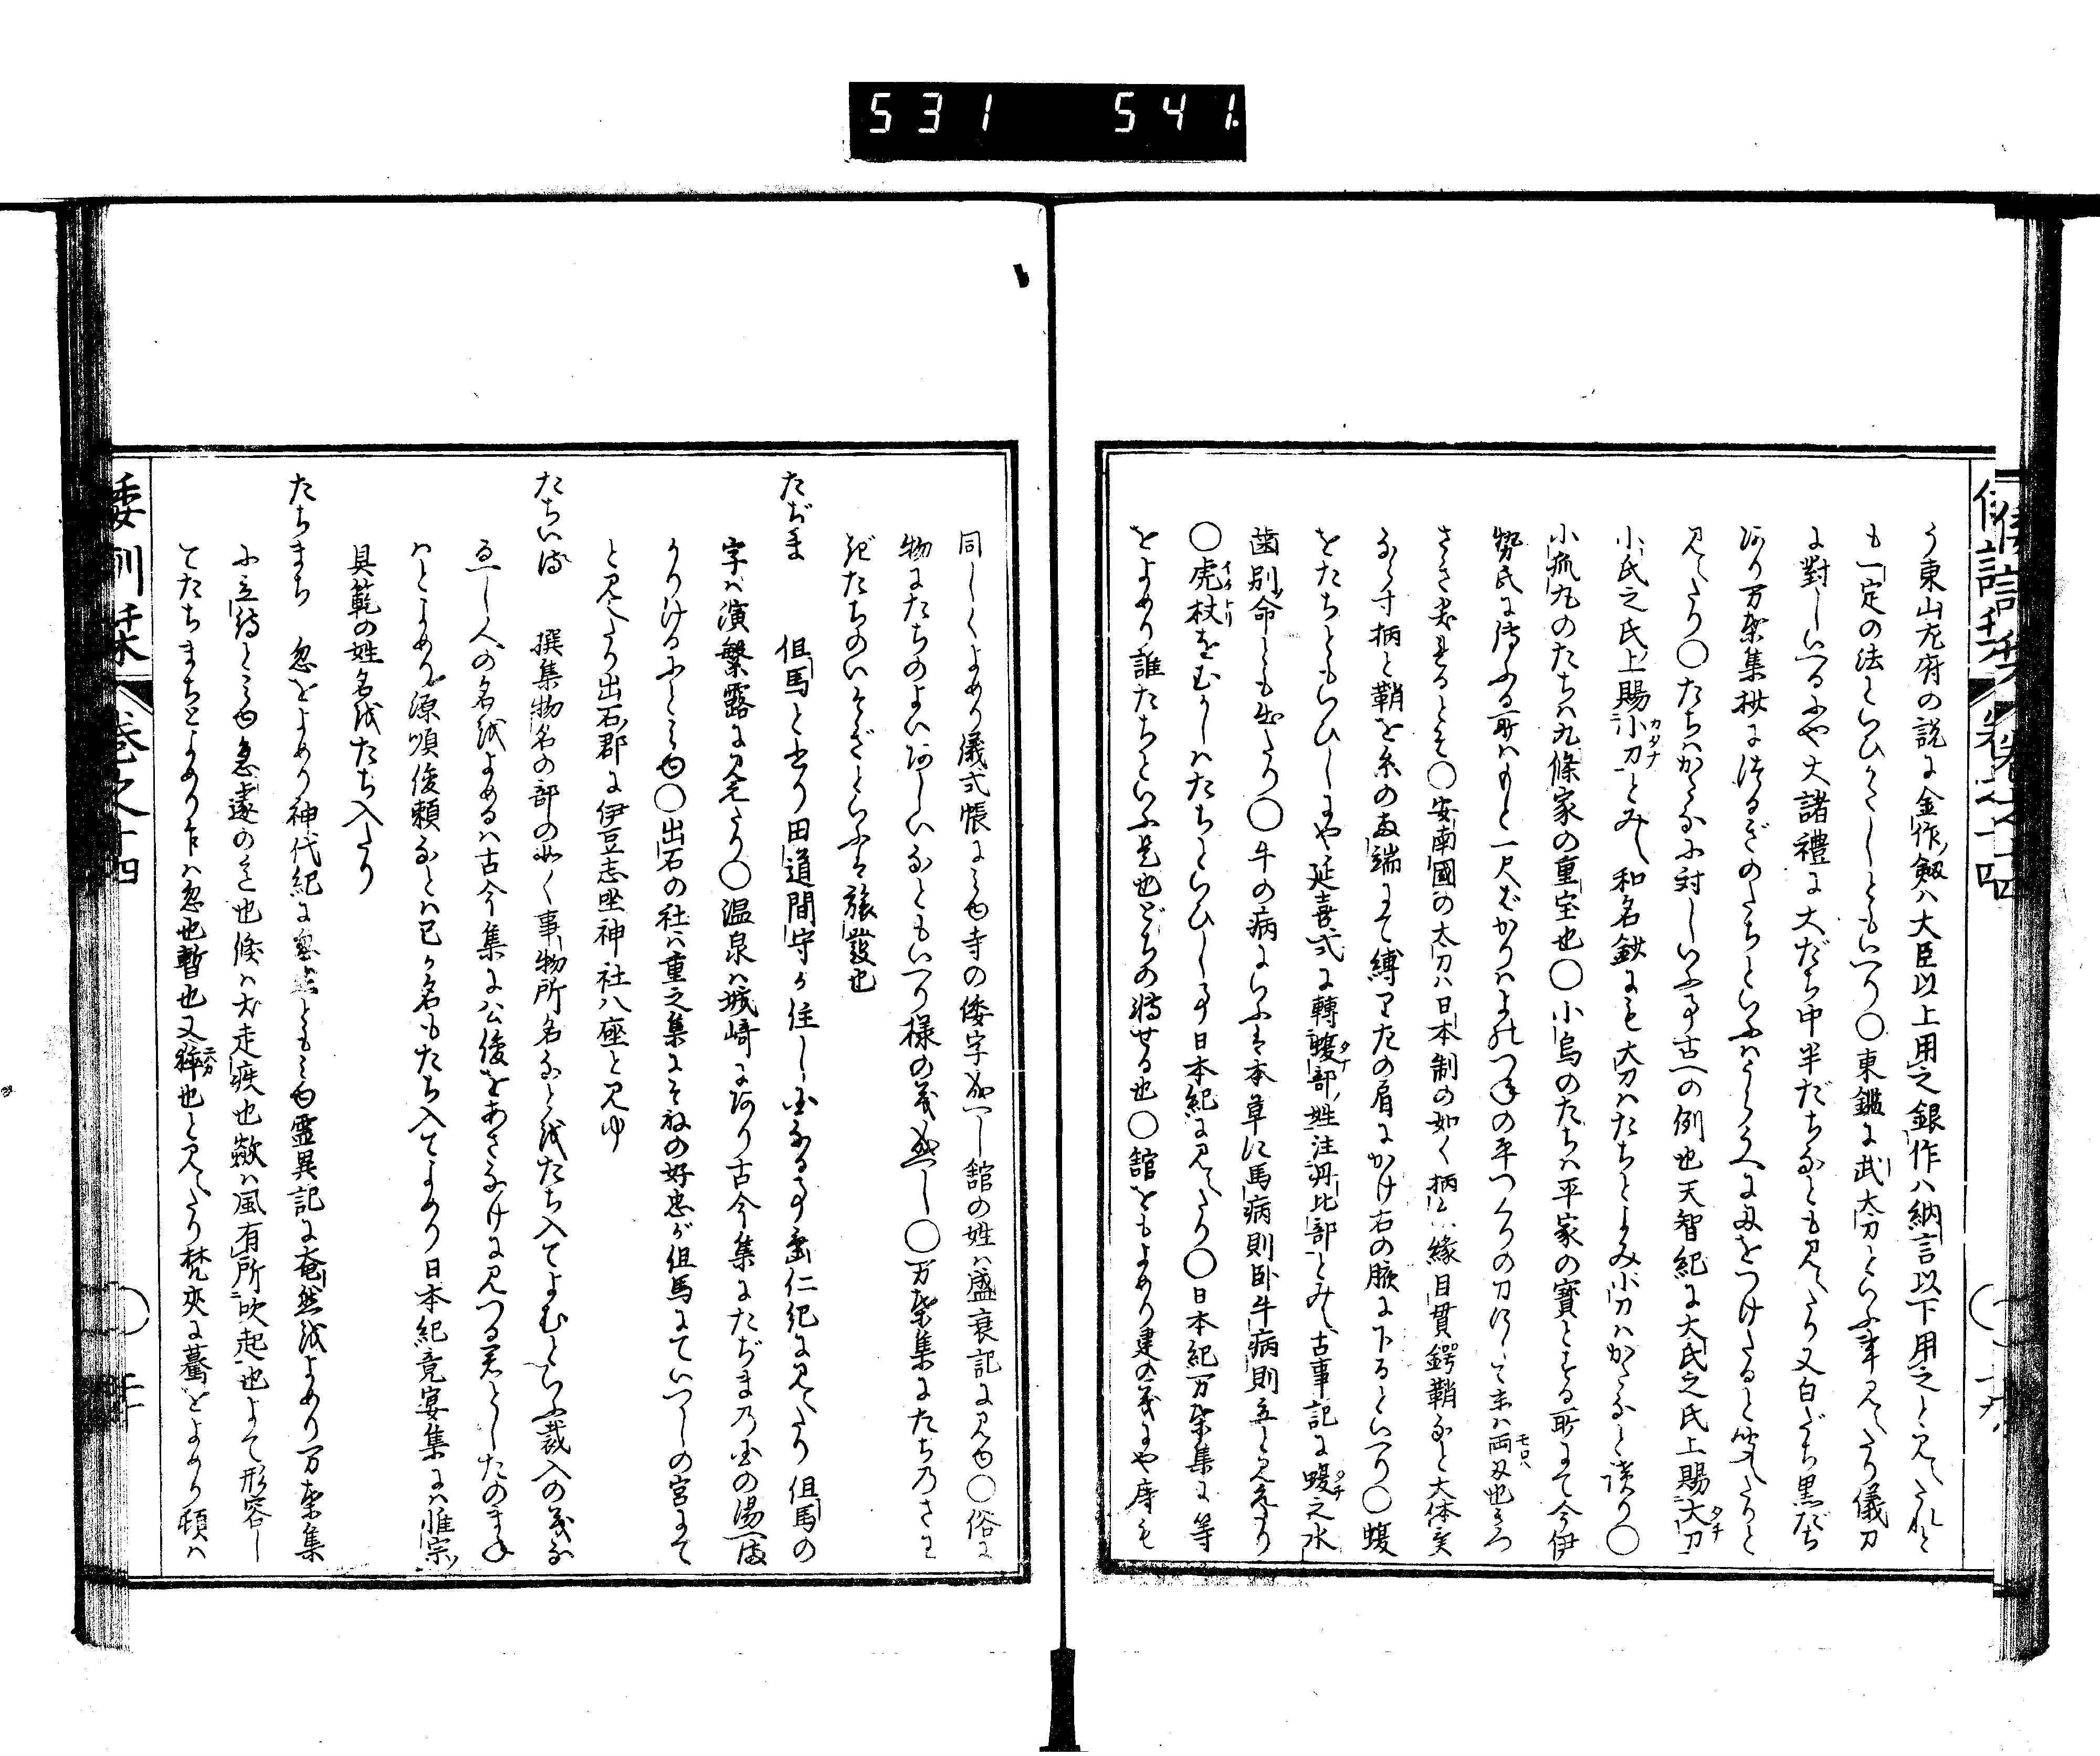 531 541.
う東山左府の説に金作剱ハ大臣以上用之銀作ハ納言以下用之と見えたれと
も一定の法といひかたしともいへり〇東鑑に武大刀といふ事見えたり儀刀
に對しいへるにや大諸禮に大だち中半だちなとも見えたり又白だち黒だち
あり万葉集抄につるぎのたちといふハうらうへに刃をつけたると聞えたりと
見えたり〇たちハかたなに対しいふ事古への例也天智紀に大氏之氏上賜大刀タチ
小氏之氏上賜小刀カタナとみえ和名鈔にも大刀ハたちとよみ小刀ハかたなと読り〇
小狐丸のたちハ九條家の重宝也〇小烏のたちハ平家の寶とする所にて今伊
勢氏に傳ふる所ハもと一尺ばかりハよのつねの平つくりの刀にして末ハ両刃モロハ也きつ
さき尖れるとそ〇安南國の太刀ハ日本制の如く柄頭縁目貫鍔鞘なと大体実
ならす柄と鞘を糸の両端にて縛りたの肩にかけ右の腋に下るといへり〇蝮
をたちともいひしにや延喜式に轉蝮タチ部姓注丹比部とみえ古事記に蝮タチ之水
歯別命とも出たり〇牛の病にいふは本草に馬病則卧牛病則立と見えたり
〇虎杖イタトリをむかしハたちといひし事日本紀に見えたり〇日本紀万葉集に等
をよめり誰たちといふ是也どちの轉せる也〇舘をもよめり建の義にや庤も
同しくよめり儀式帳にみゆ寺の倭字成へし舘の姓ハ盛衰記に見ゆ〇俗に
物にたちのよいあしいなともいへり様の義成へし〇万葉集にたちのさわ
ぎたちのいそぎといふは旅發也
たぢま 但馬と書り田道間守か住し国なる事垂仁紀に見えたり但馬の
字ハ演繁露に見えたり〇温泉ハ城崎にあり古今集にたぢまの国の湯へま
かりけるにとみゆ〇出石の社ハ重之集にそねの好忠が但馬にていつしの宮にて
と見えたり出石郡に伊豆志坐神社八座と見ゆ
たちいる 撰集物名の部の如く事物所名なとをたち入てよむといふ裁入の義な
るへし人の名をよめるハ古今集に公俊をあさなけに見つる君としたのまね
ハとよめり源順俊頼なとハ己か名もたち入てよめり日本紀竟宴集にハ惟宗
具範の姓名をたち入たり
たちまち 忽をよめり神代紀に忽然ともみゆ霊異記に奄然をよめり万葉集
に立待とみゆ急遽の意也倏ハ犬走疾也歘ハ風有所吹起也よて形容し
てたちまちとよめり乍ハ忽也暫也又猝ニハカ也と見えたり梵夾に驀をよめり頓ハ
倭訓栞 巻之十四